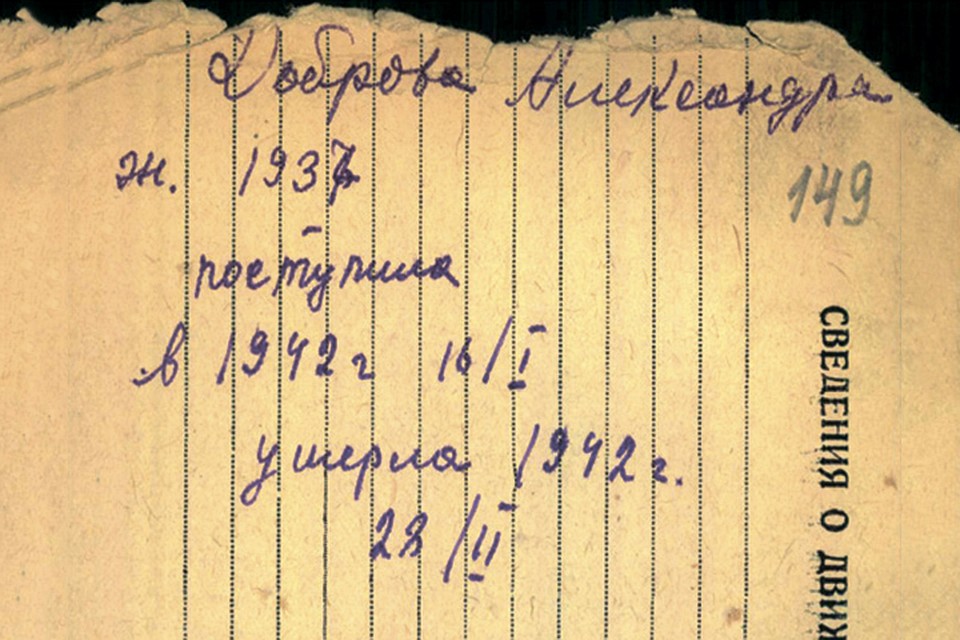 Доброва Александра
ж. 1937
149
поступила
в 1942 г 16/I
умерла 1942 г.
28/II
СВЕДЕНИЯ О ДВИЖ